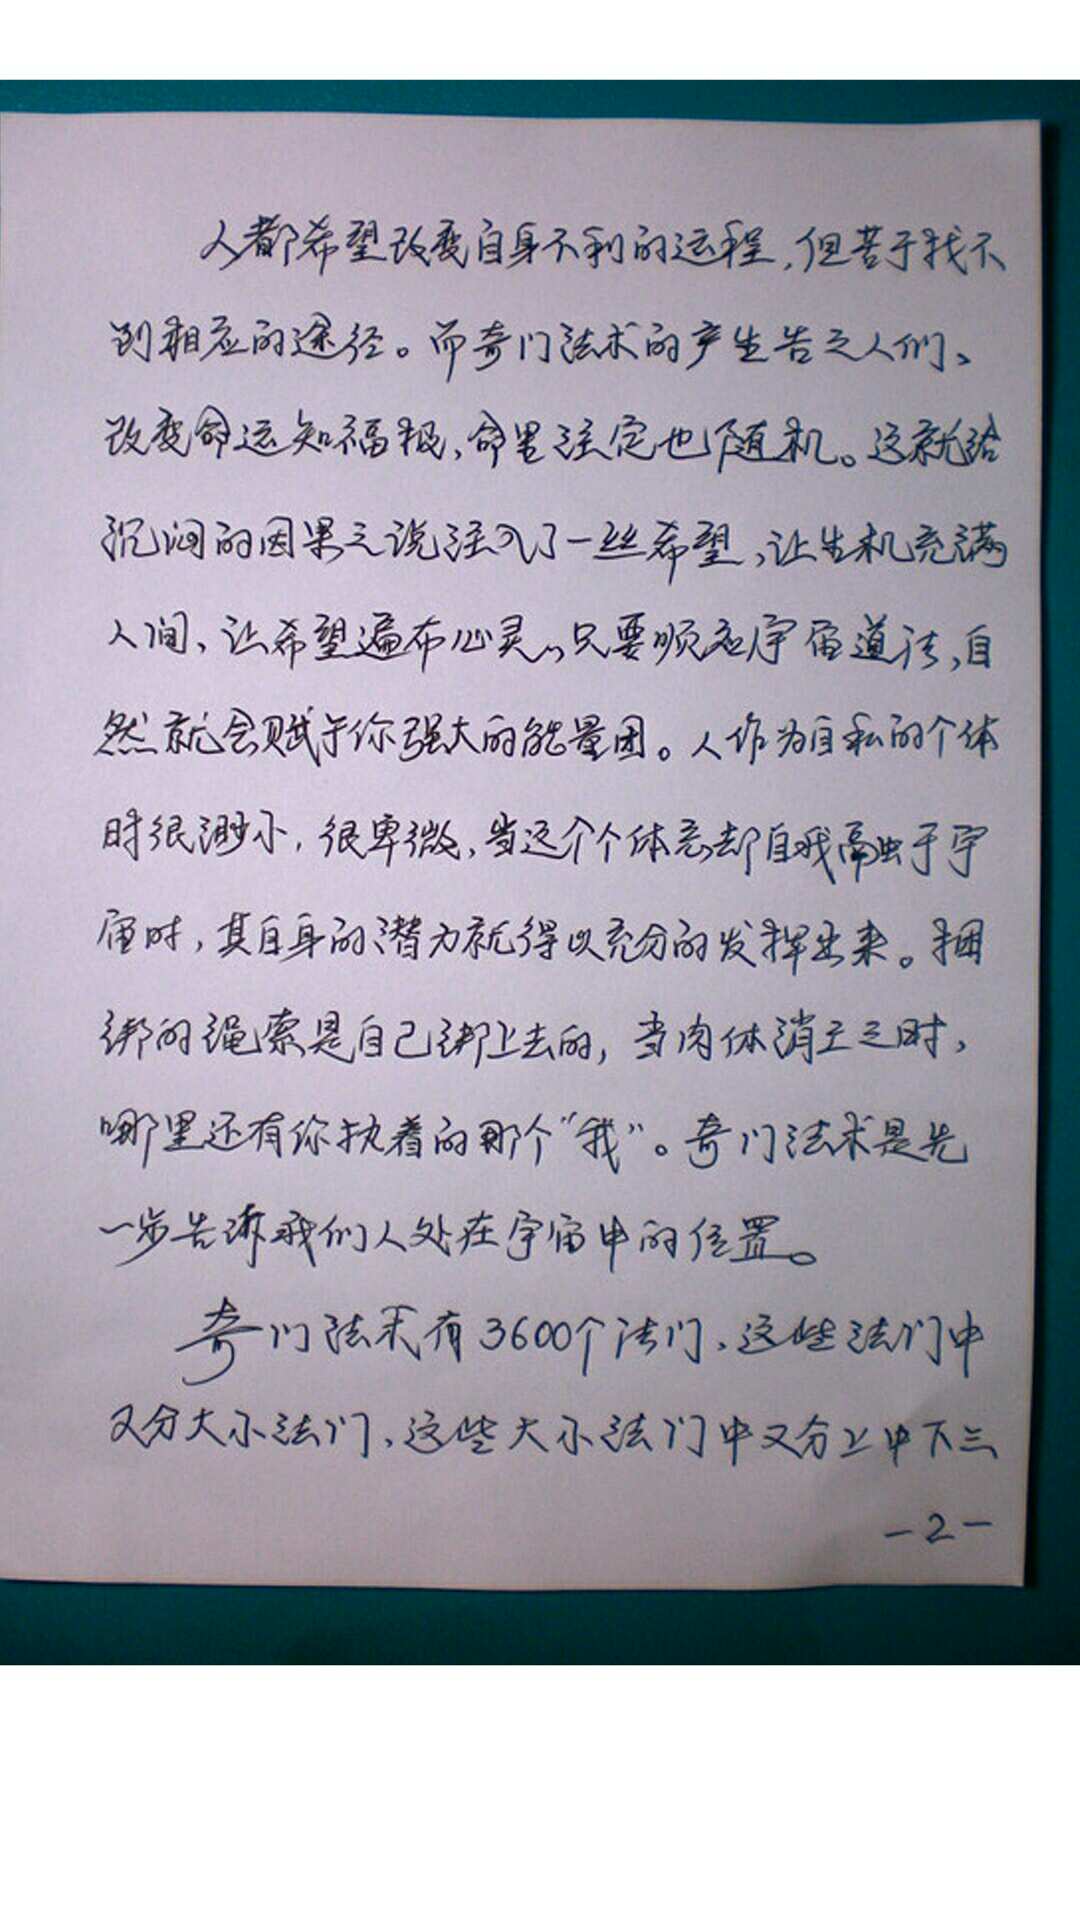 人都希望改变自身不利的运程，但苦于找不
到相应的途径。而奇门法术的产生告之人们、
改变命运知福报，命里注定也随机。这就给
沉闷的因果之说注入了一丝希望，让生机充满
人间、让希望遍布心灵。只要顺应宇宙道法，自
然就会赋于你强大的能量团。人作为自私的个体
时很渺小，很卑微，当这个个体忘却自我融于宇
宙时，其自身的潜力就得以充分的发挥出来。捆
绑的绳索是自己绑上去的，当肉体消亡之时，
哪里还有你执着的那个“我”。奇门法术是先
一步告诉我们人处在宇宙中的位置。
奇门法术有3600个法门、这些法门中
又分大小法门、这些大小法门中又分上中下三
-2-